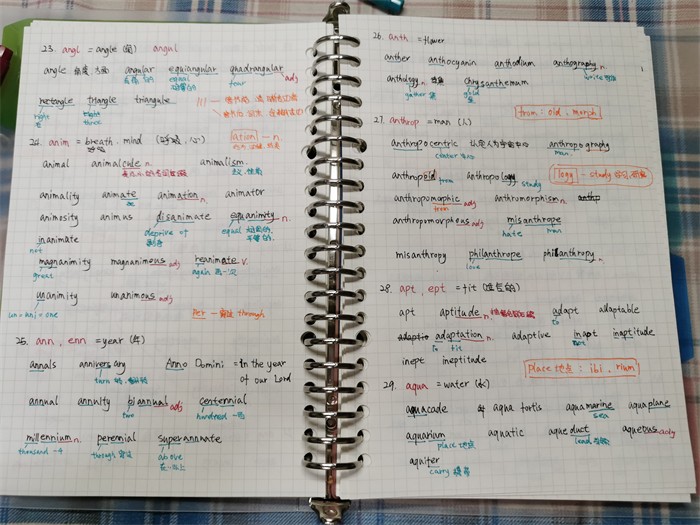 23. angl = angle (角) angul
angle 角度,方面 angular equiangular quadrangular adj
有角的 equal four
rectagle triangle triangule
right three
24. anim = breath, mind (呼吸,心) ation — n
animal animalcule n. animalism.
animality animate animation n. animator
animosity animus disanimate equanimity n.
deprive of equal
inanimate
not
magnanimity magnanimous adj reanimate v.
great again 再一次
unanimity unanimous adj
un = uni = one per — through
25. ann, enn = year (年)
annals anniversary Anno Domini = in the year
turn of our Lord
annual annuity biannual adj centennial
two hundred 一百
millennium n. perennial superannuate
thousand 一千 through above
在…以上
26. anth = flower
anther anthocyanin anthodium anthography n.
write
anthology n. chrysanthemum
gather gold
from: old, march
27. anthrop = man (人)
anthropocentric 认定人为宇宙中心 anthropography
center 中心 man
anthropoid anthropology study logy — study
from
anthropomorphic adj anthromorphism n.
from
anthropmorphous adj misanthrope
hate man
misanthropy philanthrope philanthropy n.
love
28. apt, ept = fit
apt aptitude n. adapt adaptable
to
adaptation n. adaptive inapt inaptitude
to fit not
inept ineptitude
place 地点: ibl, rium
29. aqua = water (水)
aquacade aqua fortis aquamarine aquaplane
sea
aquarium aquatic aqueduct aqueous adj
place 地点 lead
aquifer
carry